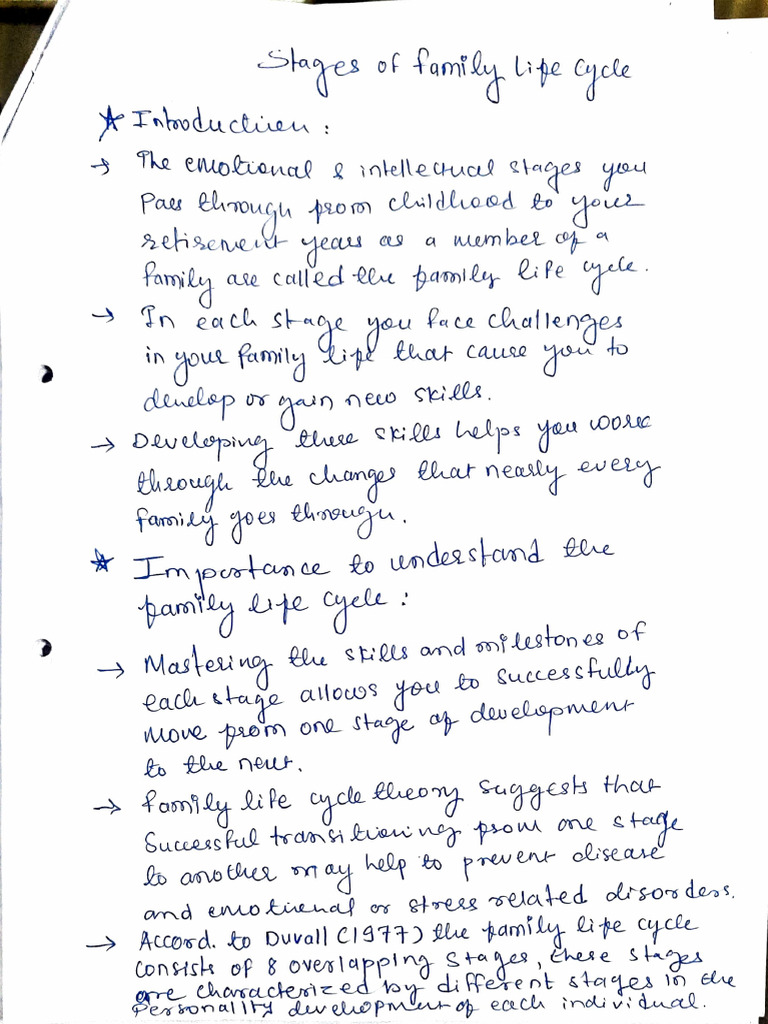 Stages of family life cycle
☆ Introduction :
→ The emotional & intellectual stages you
pass through from childhood to your
retirement years as a member of a
family are called the family life cycle.
→ In each stage you face challenges
in your family life that cause you to
develop or gain new skills.
→ Developing these skills helps you work
through the changes that nearly every
family goes through.
☆ Importance to understand the
family life cycle :
→ Mastering the skills and milestones of
each stage allows you to successfully
move from one stage of development
to the next.
→ family life cycle theory suggests that
successful transitioning from one stage
to another may help to prevent disease
and emotional or stress related disorders.
→ Accord. to Duvall (1977) the family life cycle
consists of 8 overlapping stages, these stages
are characterized by different stages in the
personality development of each individual.